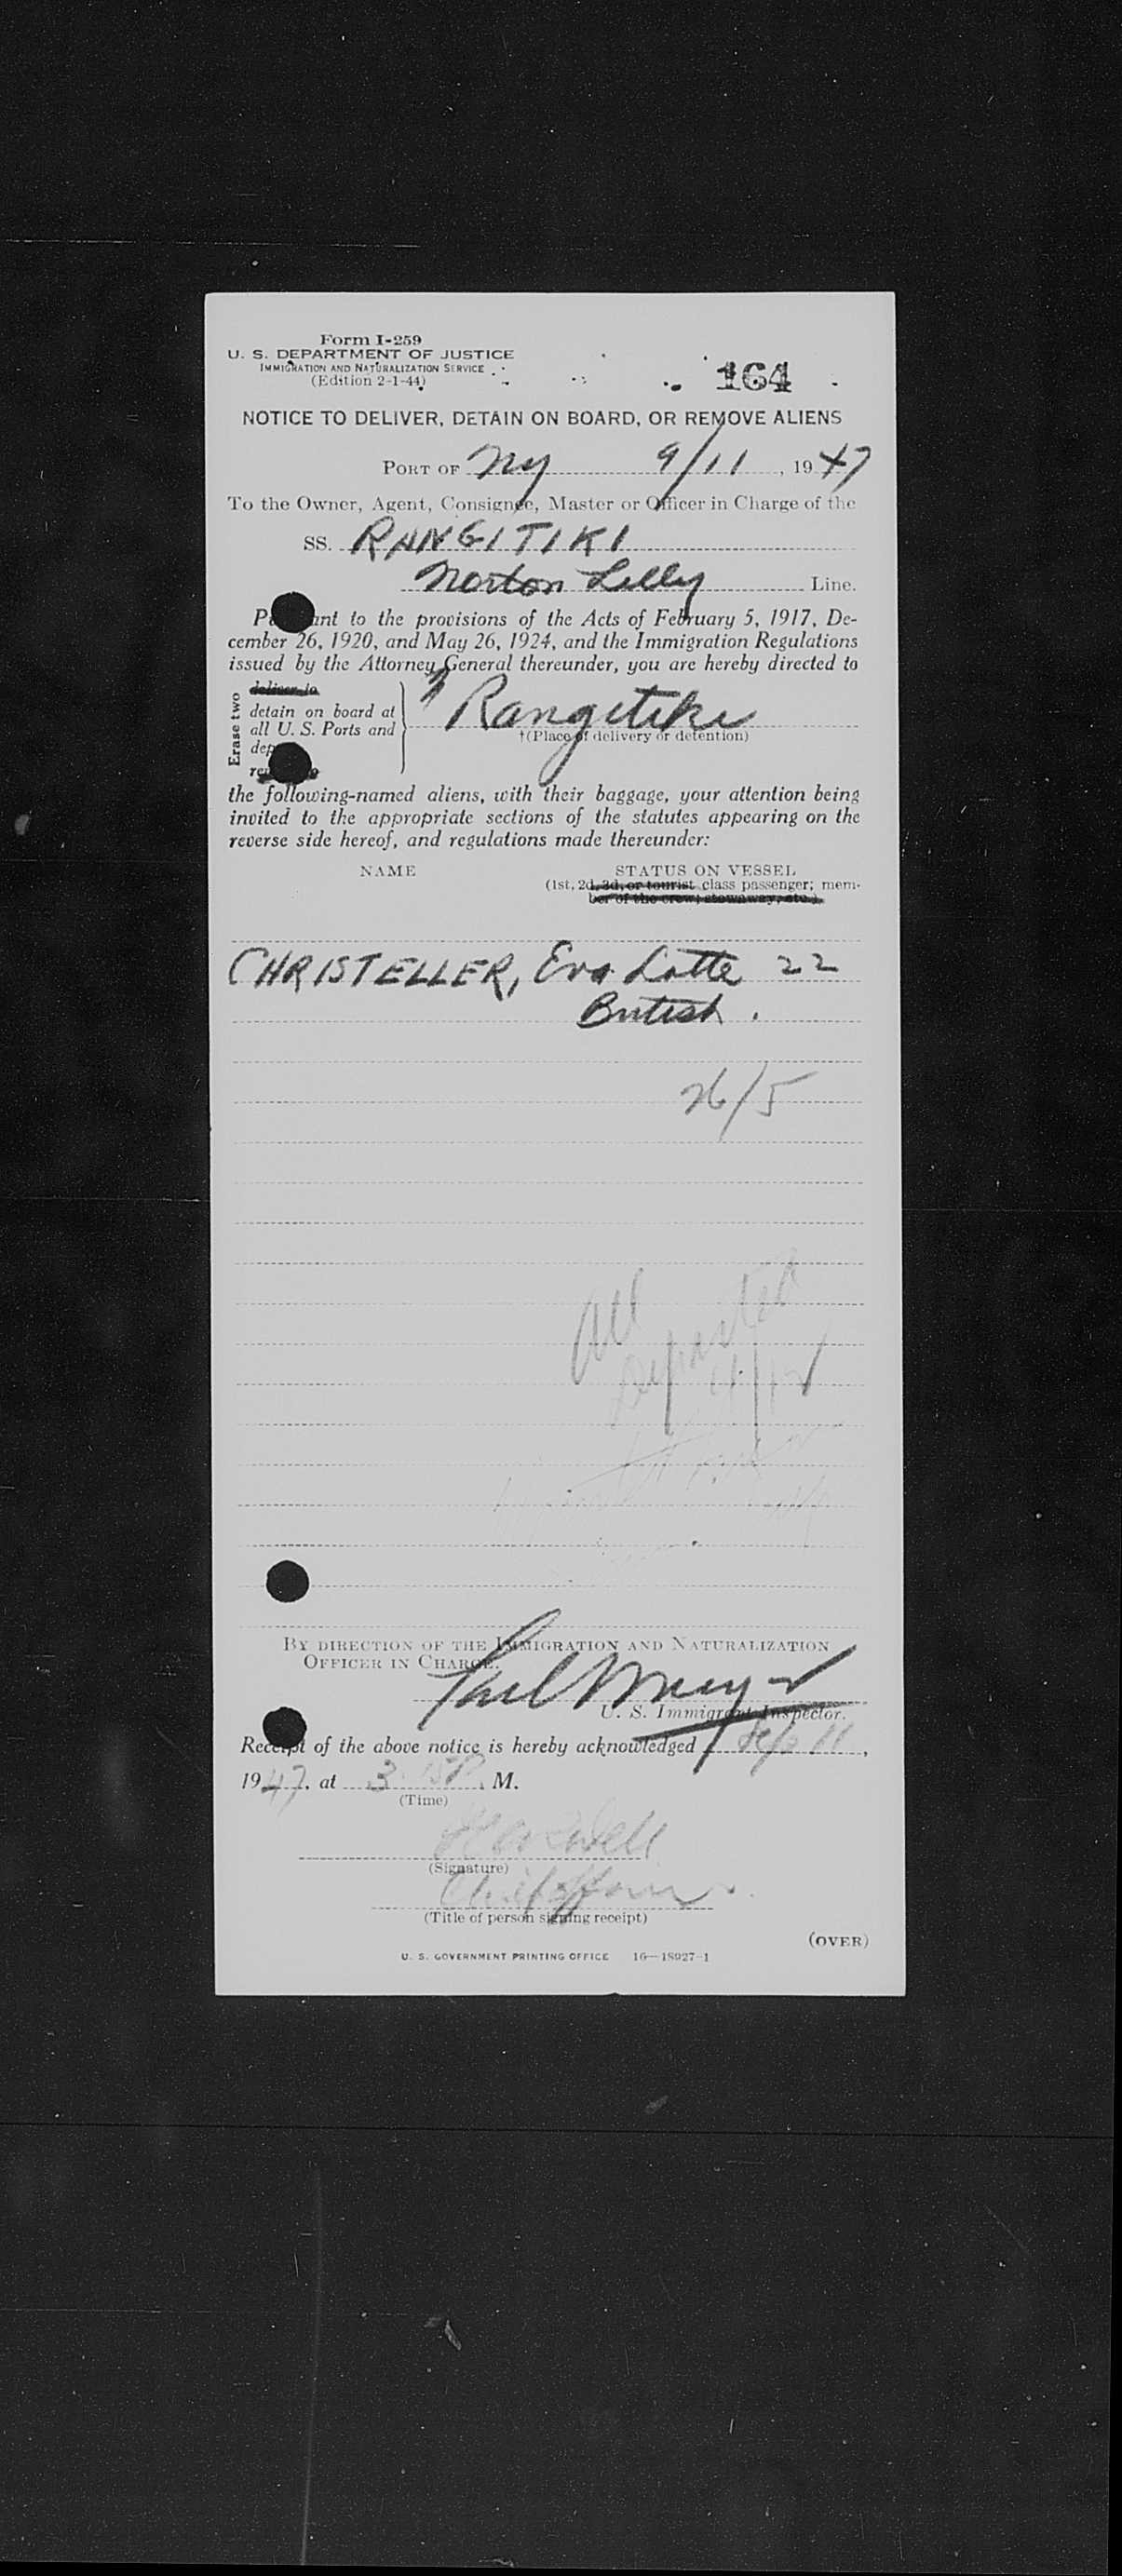 Form I-259
U. S. DEPARTMENT OF JUSTICE
IMMIGRATION AND NATURALIZATION SERVICE
(Edition 2-1-44)
164
NOTICE TO DELIVER, DETAIN ON BOARD, OR REMOVE ALIENS
PORT OF NY 9/11, 1947
To the Owner, Agent, Consignee, Master or Officer in Charge of the
SS. RANGITIKI
Norton Lilly Line.
to the provisions of the Acts of February 5, 1917, De-
cember 26, 1920, and May 26, 1924, and the Immigration Regulations
issued by the Attorney General thereunder, you are hereby directed to
Erase two
deliver to
detain on board at
all U. S. Ports and
Rangitiki
†(Place of delivery or detention)
the following-named aliens, with their baggage, your attention being
invited to the appropriate sections of the statutes appearing on the
reverse side hereof, and regulations made thereunder:
NAME STATUS ON VESSEL
(1st, 2d, 3d, or tourist class passenger; mem-
ber of the crew; stowaway, etc.)
CHRISTELLER, Eva Lotte 22
British.
26/5
All
Departed
BY DIRECTION OF THE IMMIGRATION AND NATURALIZATION
OFFICER IN CHARGE.
U. S. Immigrant Inspector.
Receipt of the above notice is hereby acknowledged Sep 11,
1947, at 3 P. M.
(Time)
(Signature)
Chief Officer
(Title of person signing receipt)
(OVER)
U. S. GOVERNMENT PRINTING OFFICE 16—18927-1